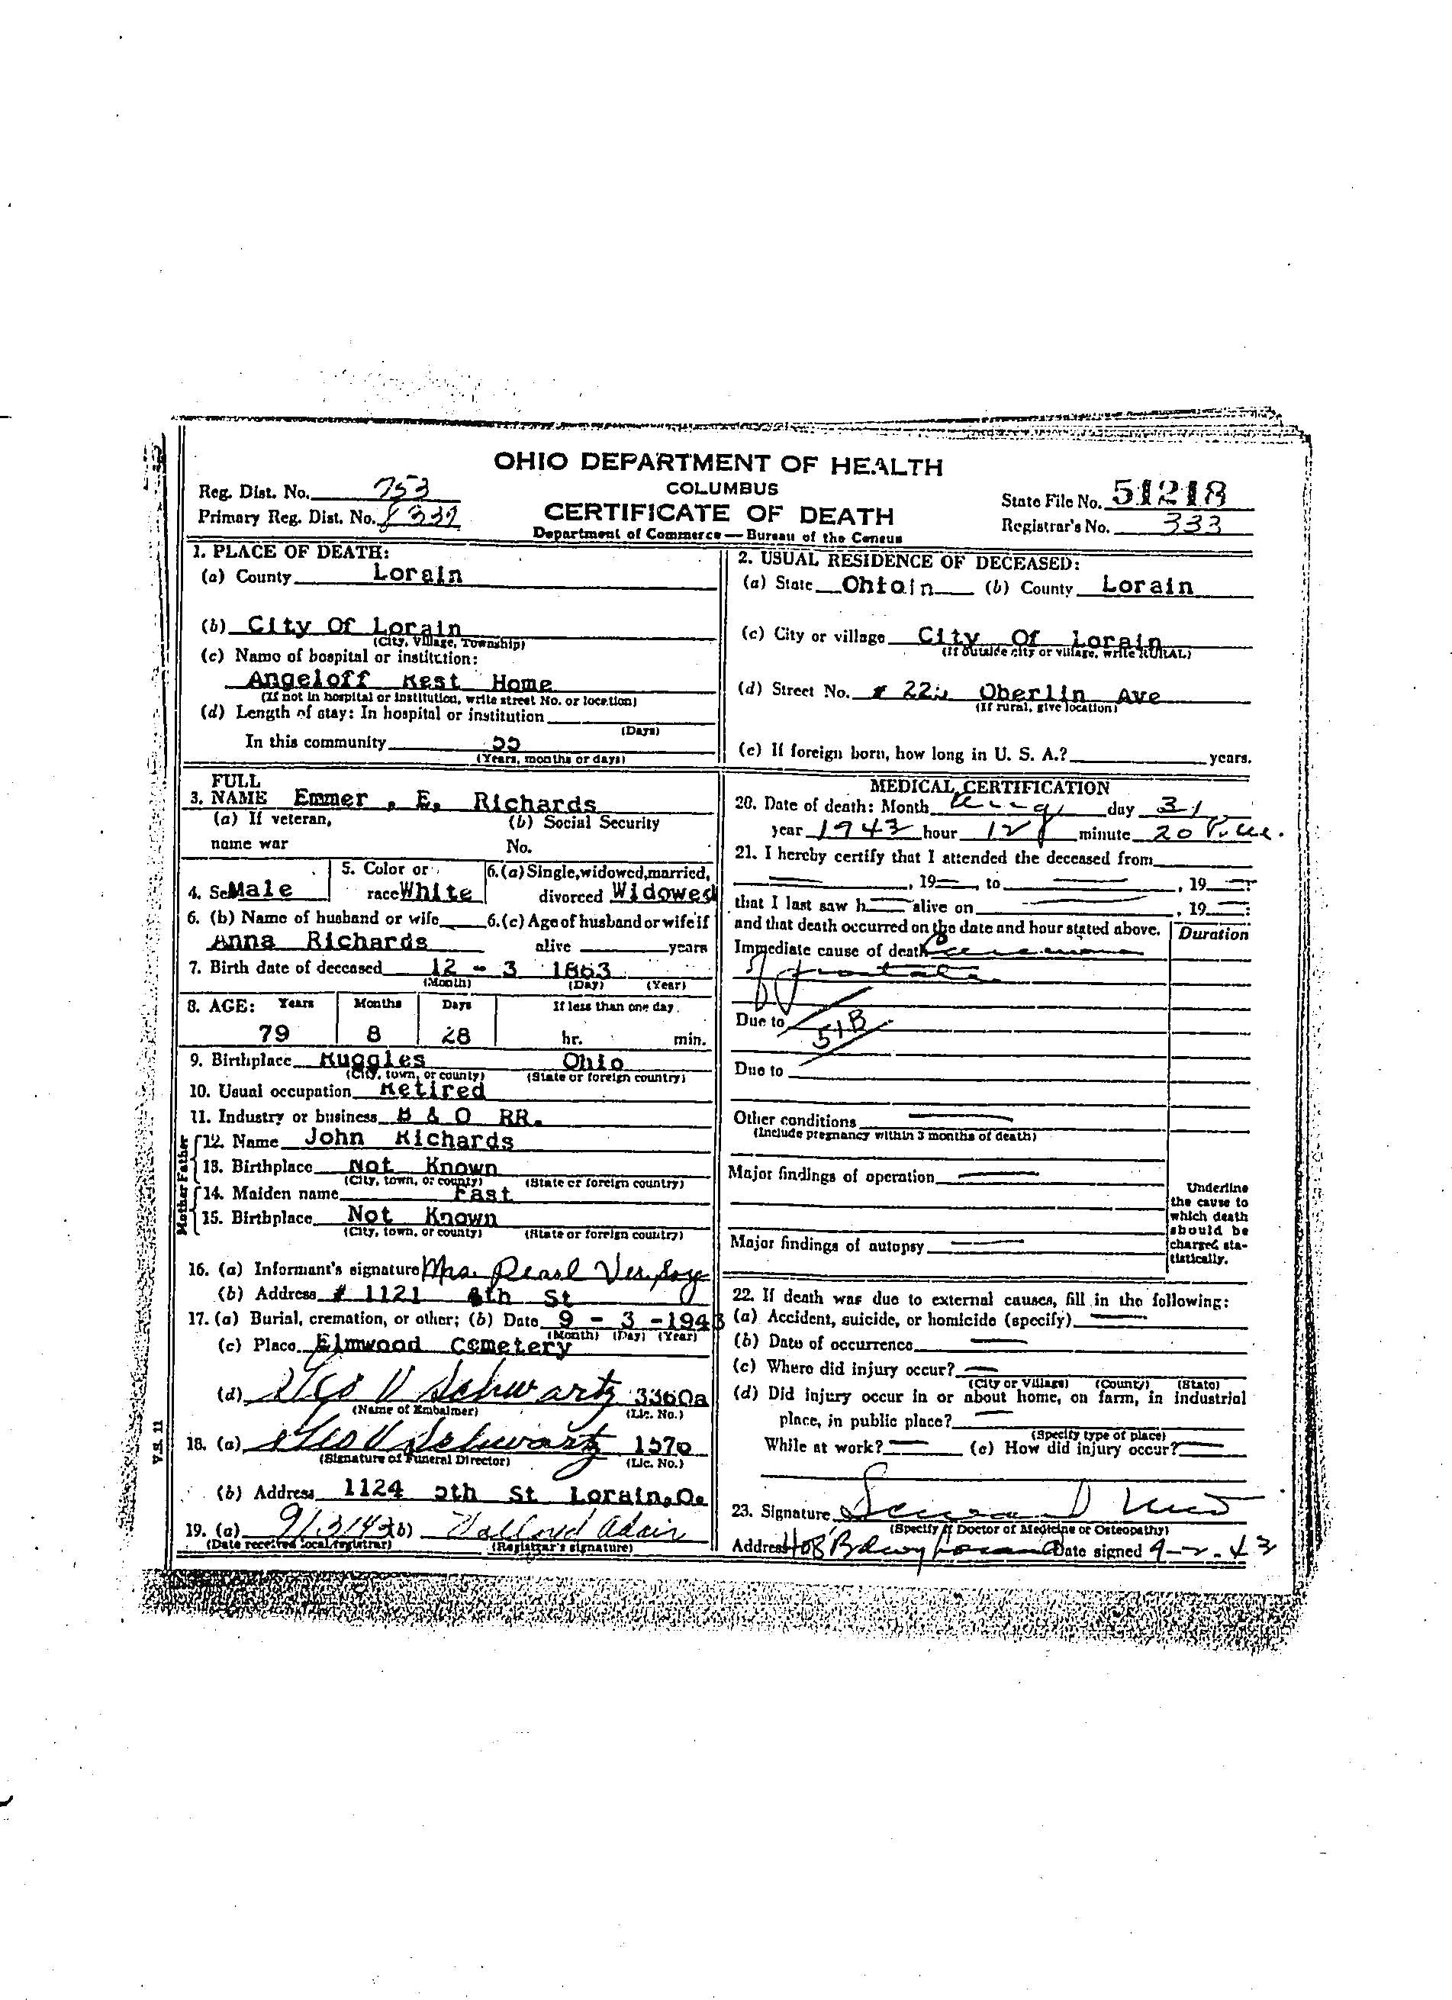 OHIO DEPARTMENT OF HEALTH
COLUMBUS
CERTIFICATE OF DEATH
Department of Commerce — Bureau of the Census
Reg. Dist. No. 753
Primary Reg. Dist. No.
State File No. 51218
Registrar's No. 333
1. PLACE OF DEATH:
(a) County Lorain
(b) City Of Lorain
(City, Village, Township)
(c) Name of hospital or institution:
Angeloff Rest Home
(If not in hospital or institution, write street No. or location)
(d) Length of stay: In hospital or institution
(Days)
In this community 55
(Years, months or days)
2. USUAL RESIDENCE OF DECEASED:
(a) State (b) County Lorain
(c) City or village City Of Lorain
(If outside city or village, write RURAL)
(d) Street No. # Oberlin Ave
(If rural, give location)
(e) If foreign born, how long in U. S. A.? years.
FULL
3. NAME Emmer . E. Richards
(a) If veteran, (b) Social Security
name war No.
4. Sex Male 5. Color or race White 6. (a) Single, widowed, married, divorced Widowed
6. (b) Name of husband or wife 6. (c) Age of husband or wife if
Anna Richards alive years
7. Birth date of deceased 12 - 3 1863
(Month) (Day) (Year)
8. AGE: Years Months Days If less than one day
79 8 28 hr. min.
9. Birthplace Ruggles Ohio
(City, town, or county) (State or foreign country)
10. Usual occupation Retired
11. Industry or business B & O RR.
Father
12. Name John Richards
13. Birthplace Not Known
(City, town, or county) (State or foreign country)
Mother
14. Maiden name Fast
15. Birthplace Not Known
(City, town, or county) (State or foreign country)
16. (a) Informant's signature Mrs. Pearl
(b) Address # 1121 St
17. (a) Burial, cremation, or other; (b) Date 9 - 3 - 1943
(Month) (Day) (Year)
(c) Place Elmwood Cemetery
(d) Geo V Schwartz 3360a
(Name of Embalmer) (Lic. No.)
18. (a) Geo V Schwartz 1570
(Signature of Funeral Director) (Lic. No.)
(b) Address 1124 5th St Lorain,O.
19. (a) 9/3/43 (b) Adair
(Date received local registrar) (Registrar's signature)
V.S. 11
MEDICAL CERTIFICATION
20. Date of death: Month Aug day 31
year 1943 hour 12 minute 20 P.M.
21. I hereby certify that I attended the deceased from
— , 19— , to — , 19—
that I last saw h— alive on — , 19—
and that death occurred on the date and hour stated above. Duration
Immediate cause of death Carcinoma
of prostate
Due to 51B
Due to
Other conditions —
(Include pregnancy within 3 months of death)
Major findings of operation —
Major findings of autopsy —
Underline
the cause to
which death
should be
charged sta-
tistically.
22. If death was due to external causes, fill in the following:
(a) Accident, suicide, or homicide (specify) —
(b) Date of occurrence —
(c) Where did injury occur? —
(City or Village) (County) (State)
(d) Did injury occur in or about home, on farm, in industrial
place, in public place? —
(Specify type of place)
While at work? — (e) How did injury occur? —
23. Signature
(Specify if Doctor of Medicine or Osteopathy)
Address Lorain O Date signed 9-2-43